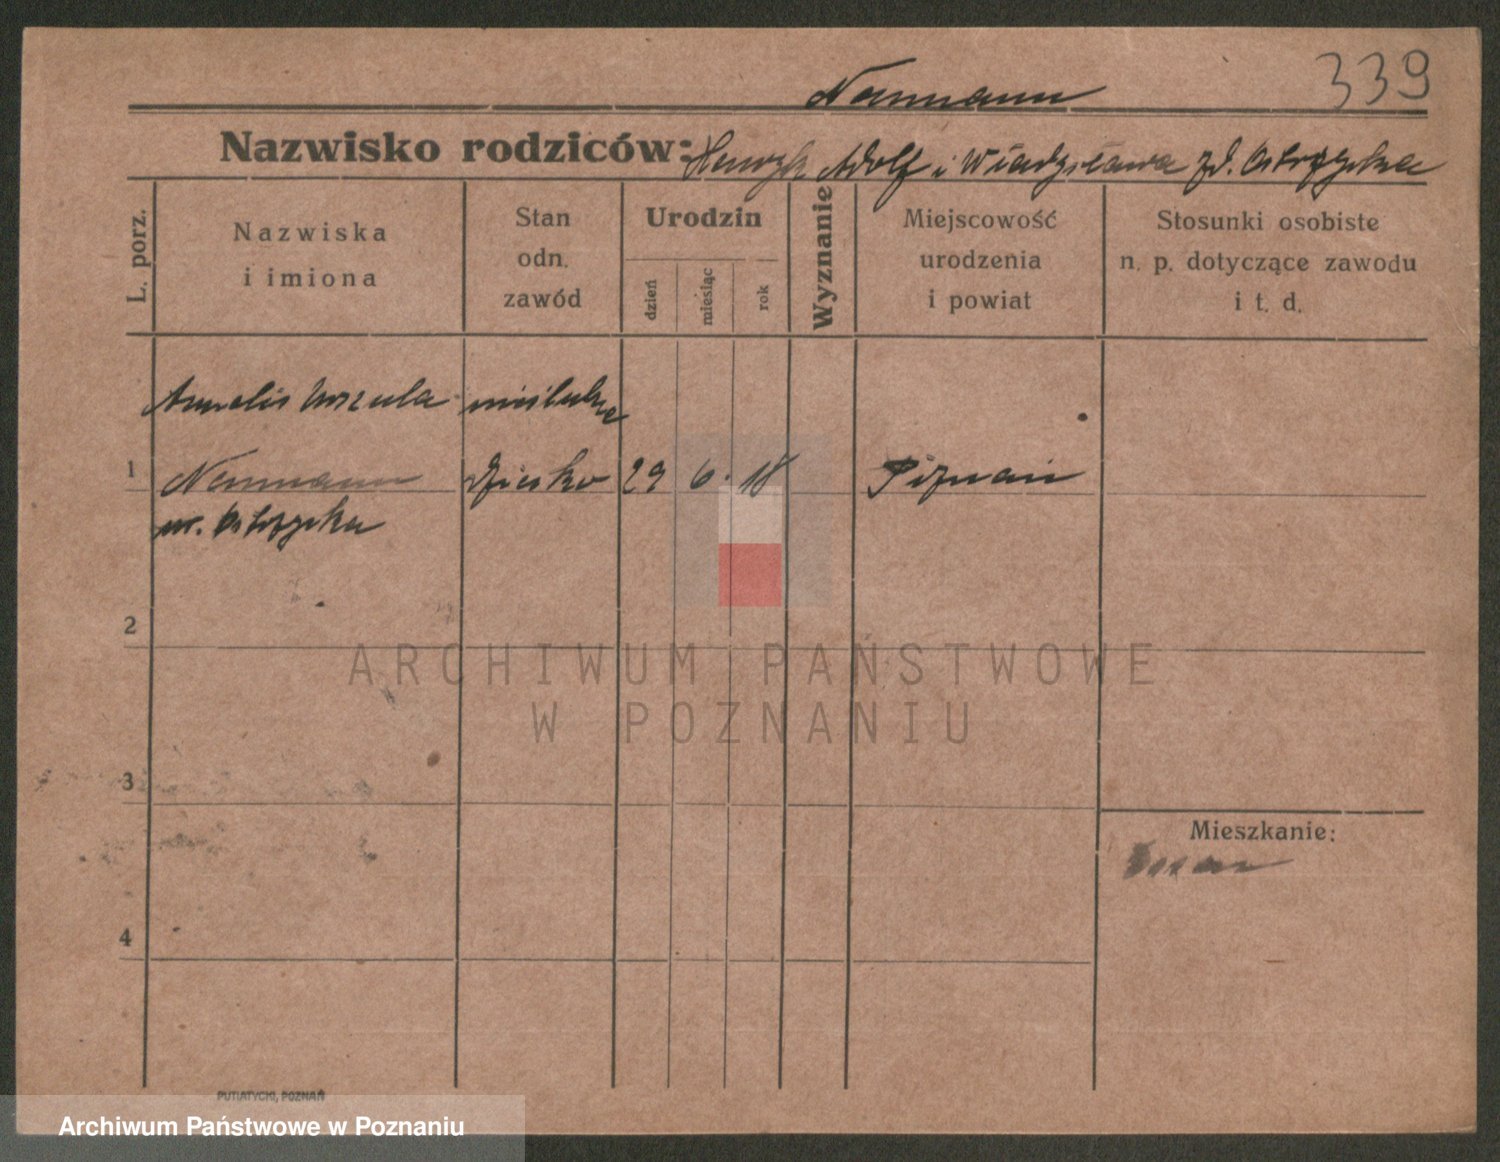 339
Naumann
Nazwisko rodziców: Henryk Adolf i Władysława zd. Ostrzycka
L. porz.
Nazwiska
i imiona
Stan
odn.
zawód
Urodzin
dzień
miesiąc
rok
Wyznanie
Miejscowość
urodzenia
i powiat
Stosunki osobiste
n. p. dotyczące zawodu
i t. d.
Urszula nieślubne
1 Naumann dziecko 29 6. 18 Poznań
ur. Ostrzycka
2
3
4
Mieszkanie:
PUTIATYCKI, POZNAŃ
ARCHIWUM PAŃSTWOWE
W POZNANIU
Archiwum Państwowe w Poznaniu